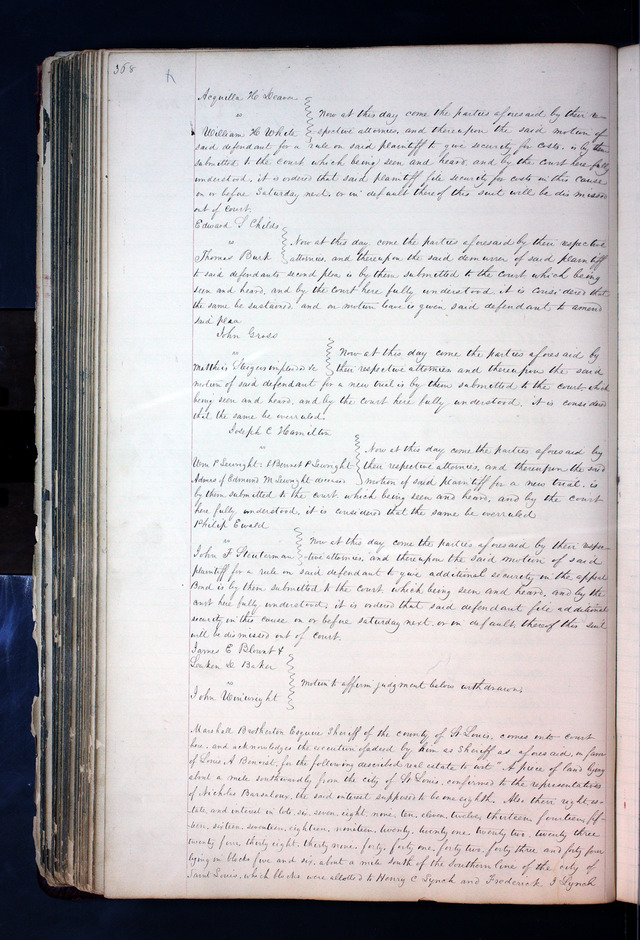 368
Acquilla H Deane
vs Now at this day come the parties aforesaid by their re-
William H White spective attornies, and thereupon the said motion of
said defendant for a rule on said plaintiff to give security for costs, is by them
submitted to the court which being seen and heard, and by the court here fully
understood, it is ordered that said plaintiff file security for costs in this cause
on or before Saturday next, or in default there of this suit will be dismissed
out of Court.
Edward S Childs
vs Now at this day come the parties aforesaid by their respective
Thomas Burk attornies, and thereupon the said demurrer of said plaintiff
to said defendants second plea is by them submitted to the court, which being
seen and heard, and by the Court here fully understood it is considered that
the same be sustained and on motion leave is given said defendant to amend
said plea
John Gross
vs Now at this day come the parties aforesaid by
Matthias impleaded &c their respective attornies and thereupon the said
motion of said defendant for a new trial is by them submitted to the court which
being seen and heard, and by the court here fully understood, it is considered
that the same be overruled.
Joseph C Hamilton
vs Now at this day come the parties aforesaid by
Wm P Sewright & Bennet P Sewright their respective attornies, and thereupon the said
Admrs of Edmund M Sewright deceased motion of said plaintiff for a new trial, is
by them submitted to the court which being seen and heard, and by the court
here fully understood, it is considered that the same be overruled
Philip Ewald
vs Now at this day come the parties aforesaid by their respec-
John F Stuterman tive attornies, and thereupon the said motion of said
plaintiff for a rule on said defendant to give additional security in the appeal
Bond is by them submitted to the court which being seen and heard, and by the
court here fully understood, it is ordered that said defendant file additional
security in this cause on or before saturday next, or in default thereof this suit
will be dismissed out of Court.
James E Blount &
D Baker
vs Motion to affirm judgment below withdrawn.
John Winwright
Marshall Brotherton Esquire Sheriff of the county of St Louis, comes into court
here, and acknowledges the execution of a deed by him as Sheriff as aforesaid, in favor
of Louis A Benoist, for the following described real estate to wit "A piece of land lying
about a mile southwardly from the city of St Louis, confirmed to the representatives
of Nicholas Barsaloux, the said interest supposed to be one eighth. Also there right es-
tate, and interest in lots, six, seven, eight, nine, ten, eleven, twelve, thirteen fourteen, fif-
teen, sixteen, seventeen, eighteen, nineteen, twenty, twenty one, twenty two, twenty three
twenty four, thirty eight, thirty nine, forty, forty one, forty two, forty three and forty four
lying in blocks five and six, about a mile south of the Southern line of the city of
Saint Louis, which blocks were allotted to Henry C Lynch and Frederick J Lynch